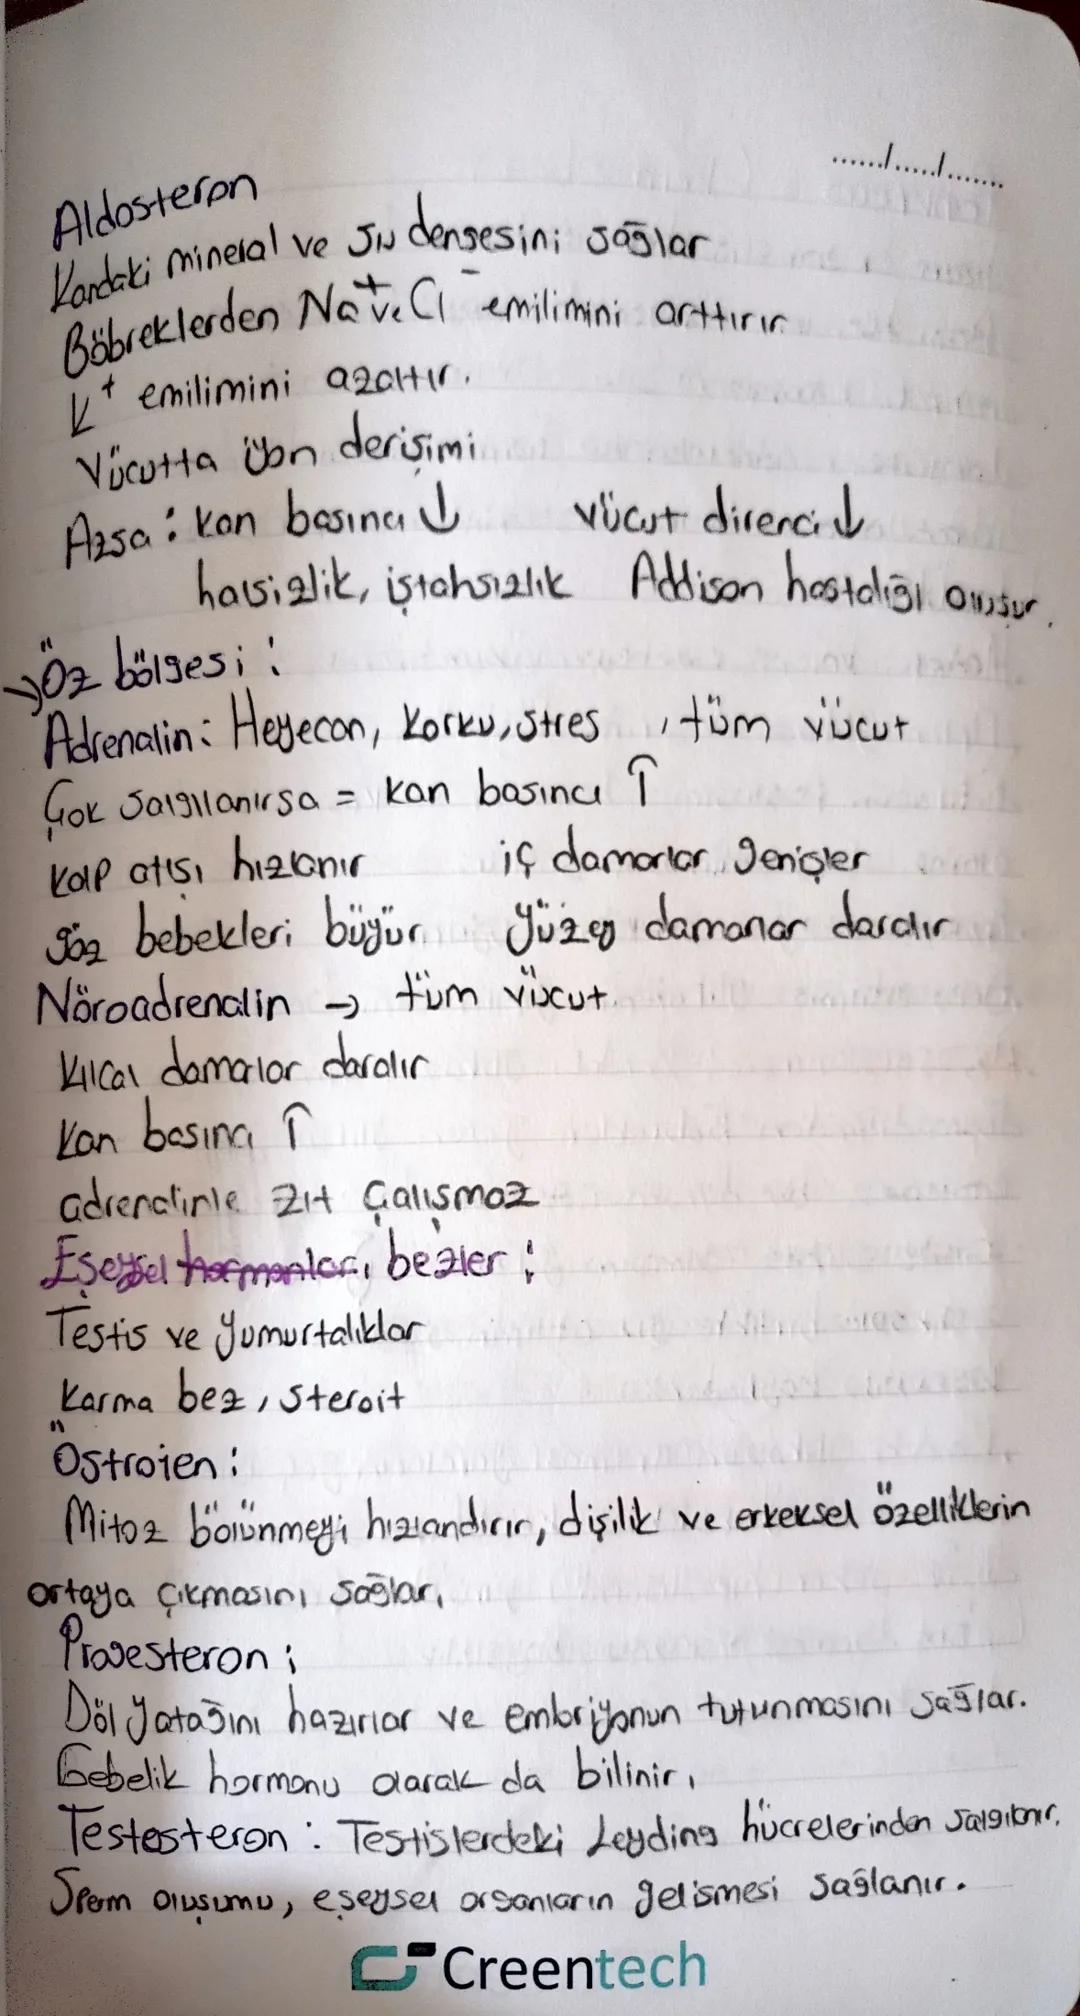 ....../....../.......
Aldosteron
Kandaki mineral ve su dengesini sağlar
Böbreklerden Na⁺ ve Cl⁻ emilimini arttırır
K⁺ emilimini azaltır.
Vücutta iyon derişimi
Azsa : kan basıncı ↓ vücut direnci ↓
halsizlik, iştahsızlık Addison hastalığı oluşur.
→ Öz bölgesi :
Adrenalin : Heyecan, korku, stres , tüm vücut
Çok salgılanırsa = kan basıncı ↑
kalp atışı hızlanır iç damarlar genişler
göz bebekleri büyür yüzey damarlar daralır
Nöroadrenalin → tüm vücut
Kılcal damarlar daralır
Kan basıncı ↑
adrenalinle zıt çalışmaz
Eşeysel hormonları bezler :
Testis ve yumurtalıklar
Karma bez, steroit
Östrojen :
Mitoz bölünmeyi hızlandırır, dişilik ve erkeksel özelliklerin
ortaya çıkmasını sağlar,
Progesteron ;
Döl yatağını hazırlar ve embriyonun tutunmasını sağlar.
Gebelik hormonu olarak da bilinir,
Testesteron : Testislerdeki Leyding hücrelerinden salgılanır.
Sperm oluşumu, eşeysel organların gelişmesi sağlanır.
Creentech